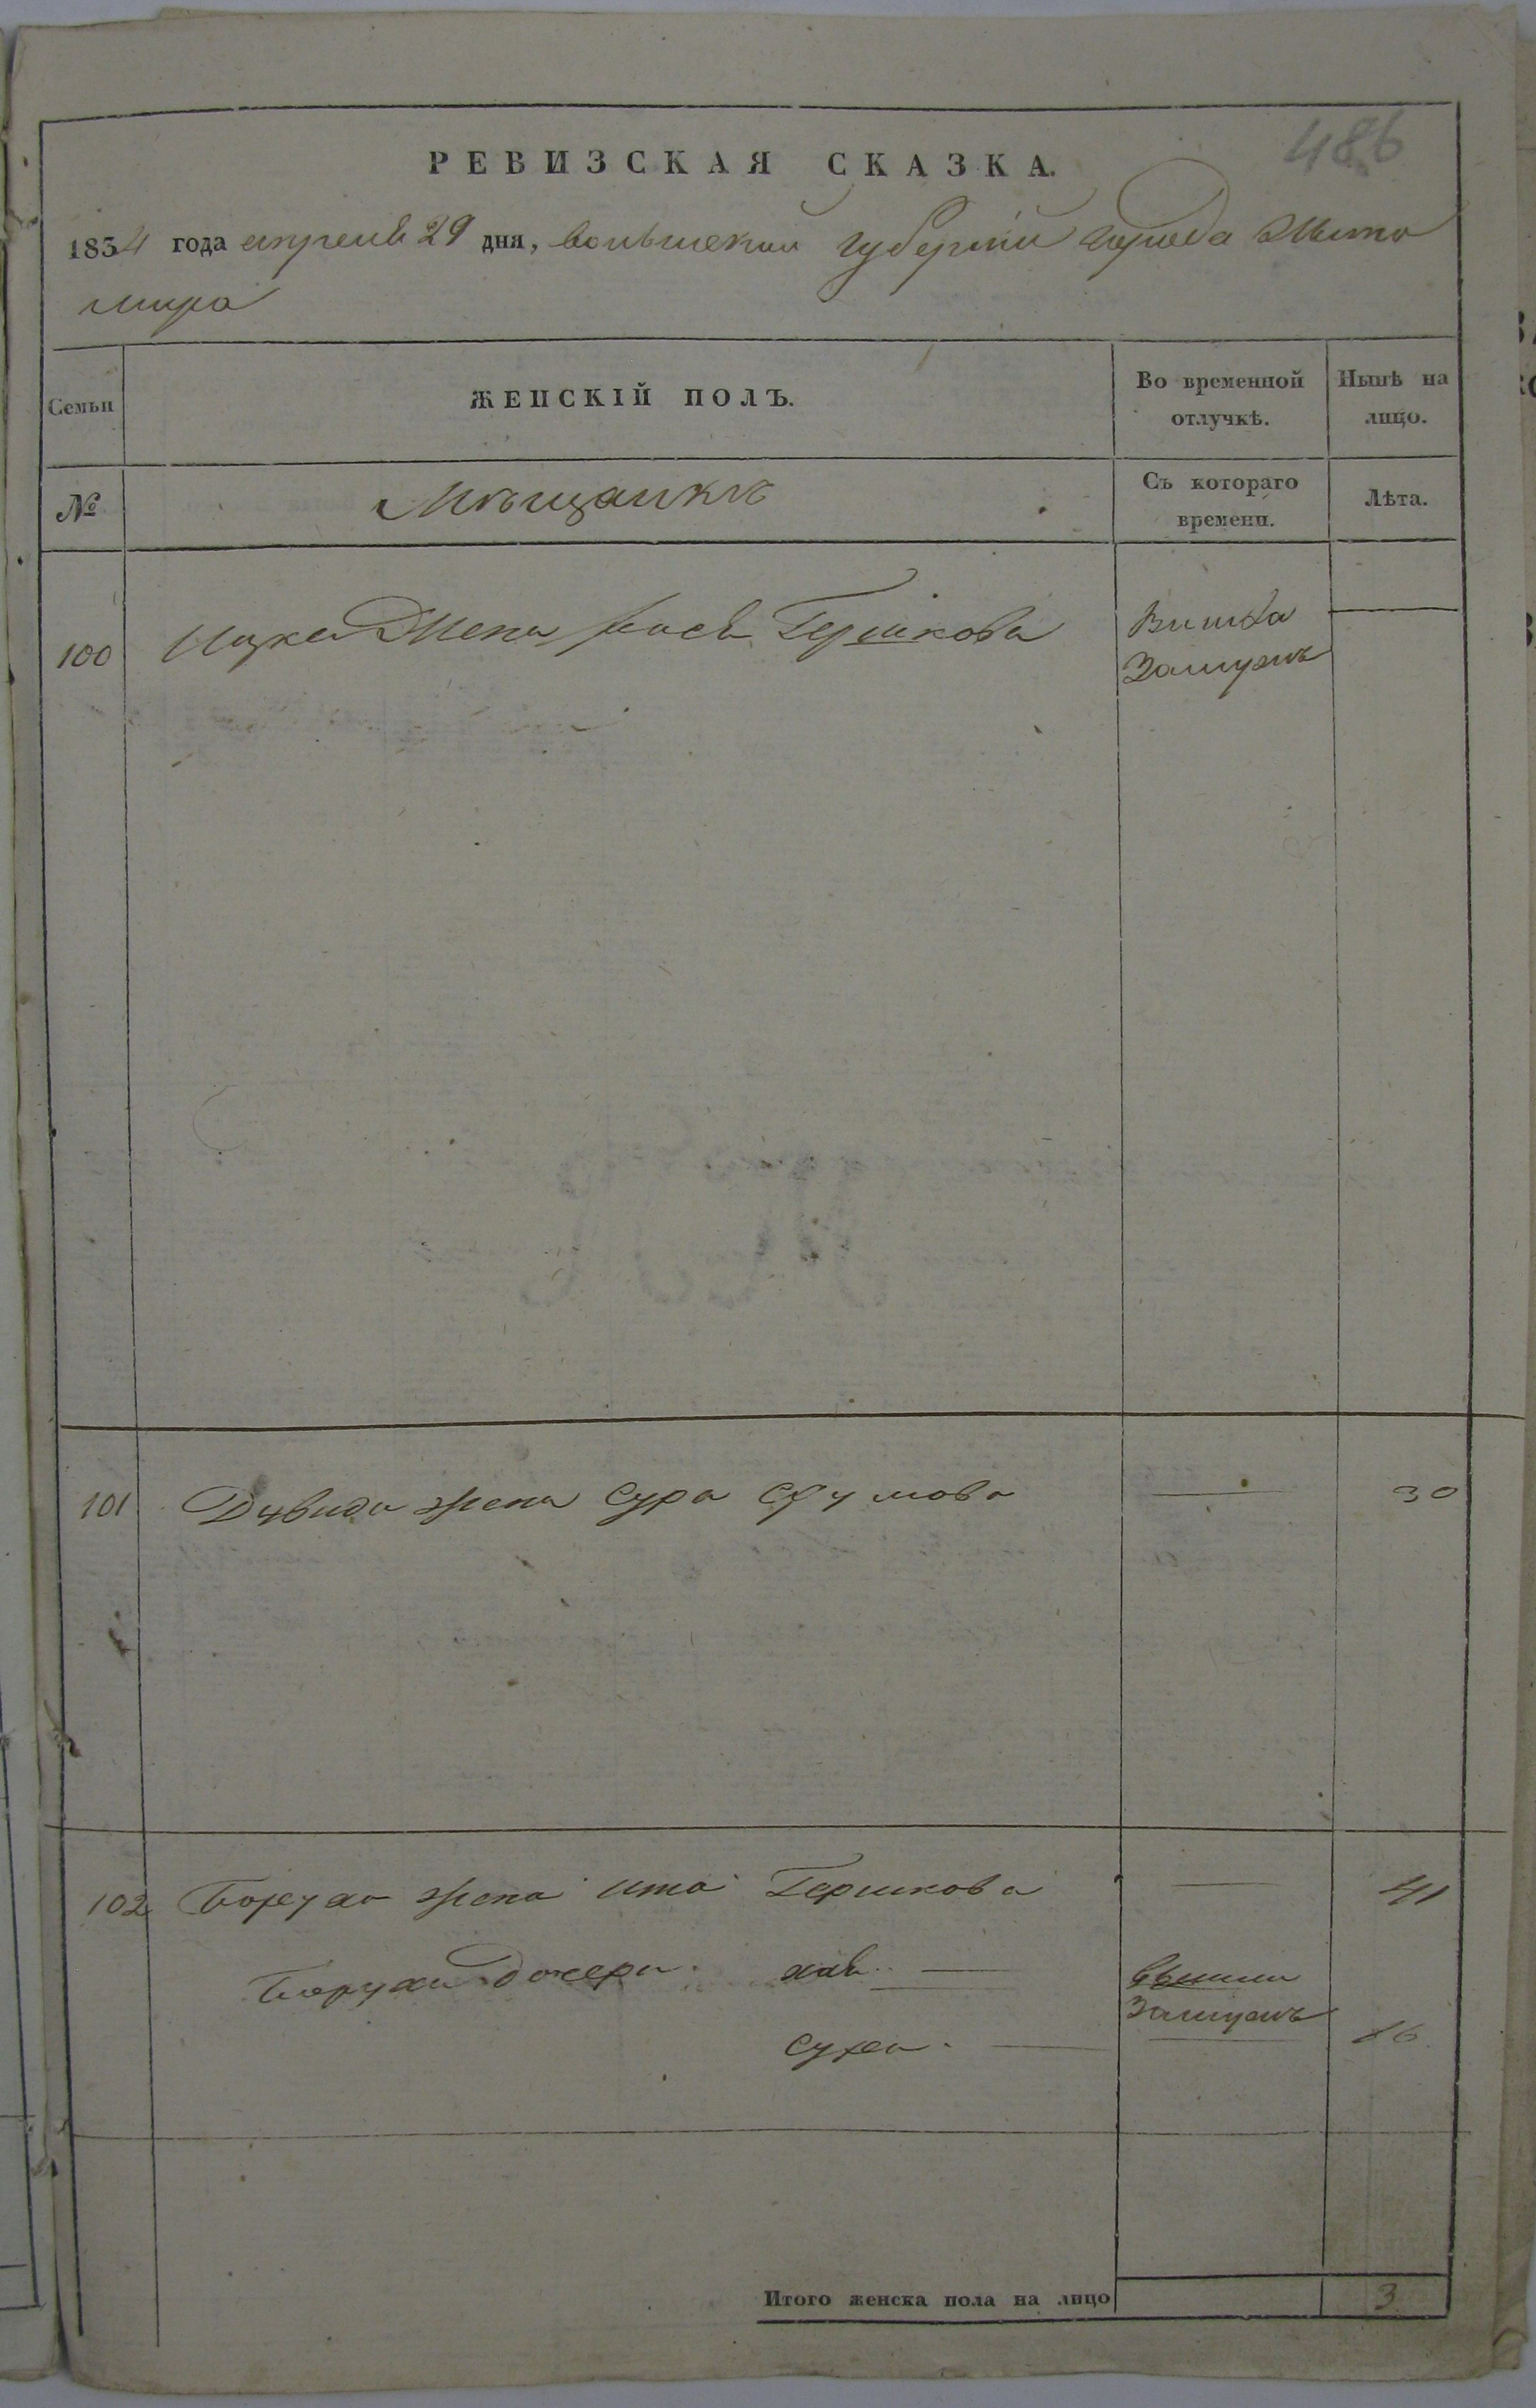 486
РЕВИЗСКАЯ СКАЗКА.
1834 года апреля 29 дня, волынской губернии города Жито
мира
Семьи
ЖЕНСКІЙ ПОЛЪ.
Во временной отлучкѣ.
Нынѣ на лицо.
№
Мѣщанкѣ
Съ котораго времени.
Лѣта.
100 Ицка Жена бася Гершкова Вишла —
Замужъ
101 Дувида жена Сура Сру мова — 30
102 Боруха жена ита Гершкова — 41
Боруха дочери хая — вышли
Замужъ
Сура — — 16
Итого женска пола на лицо 3